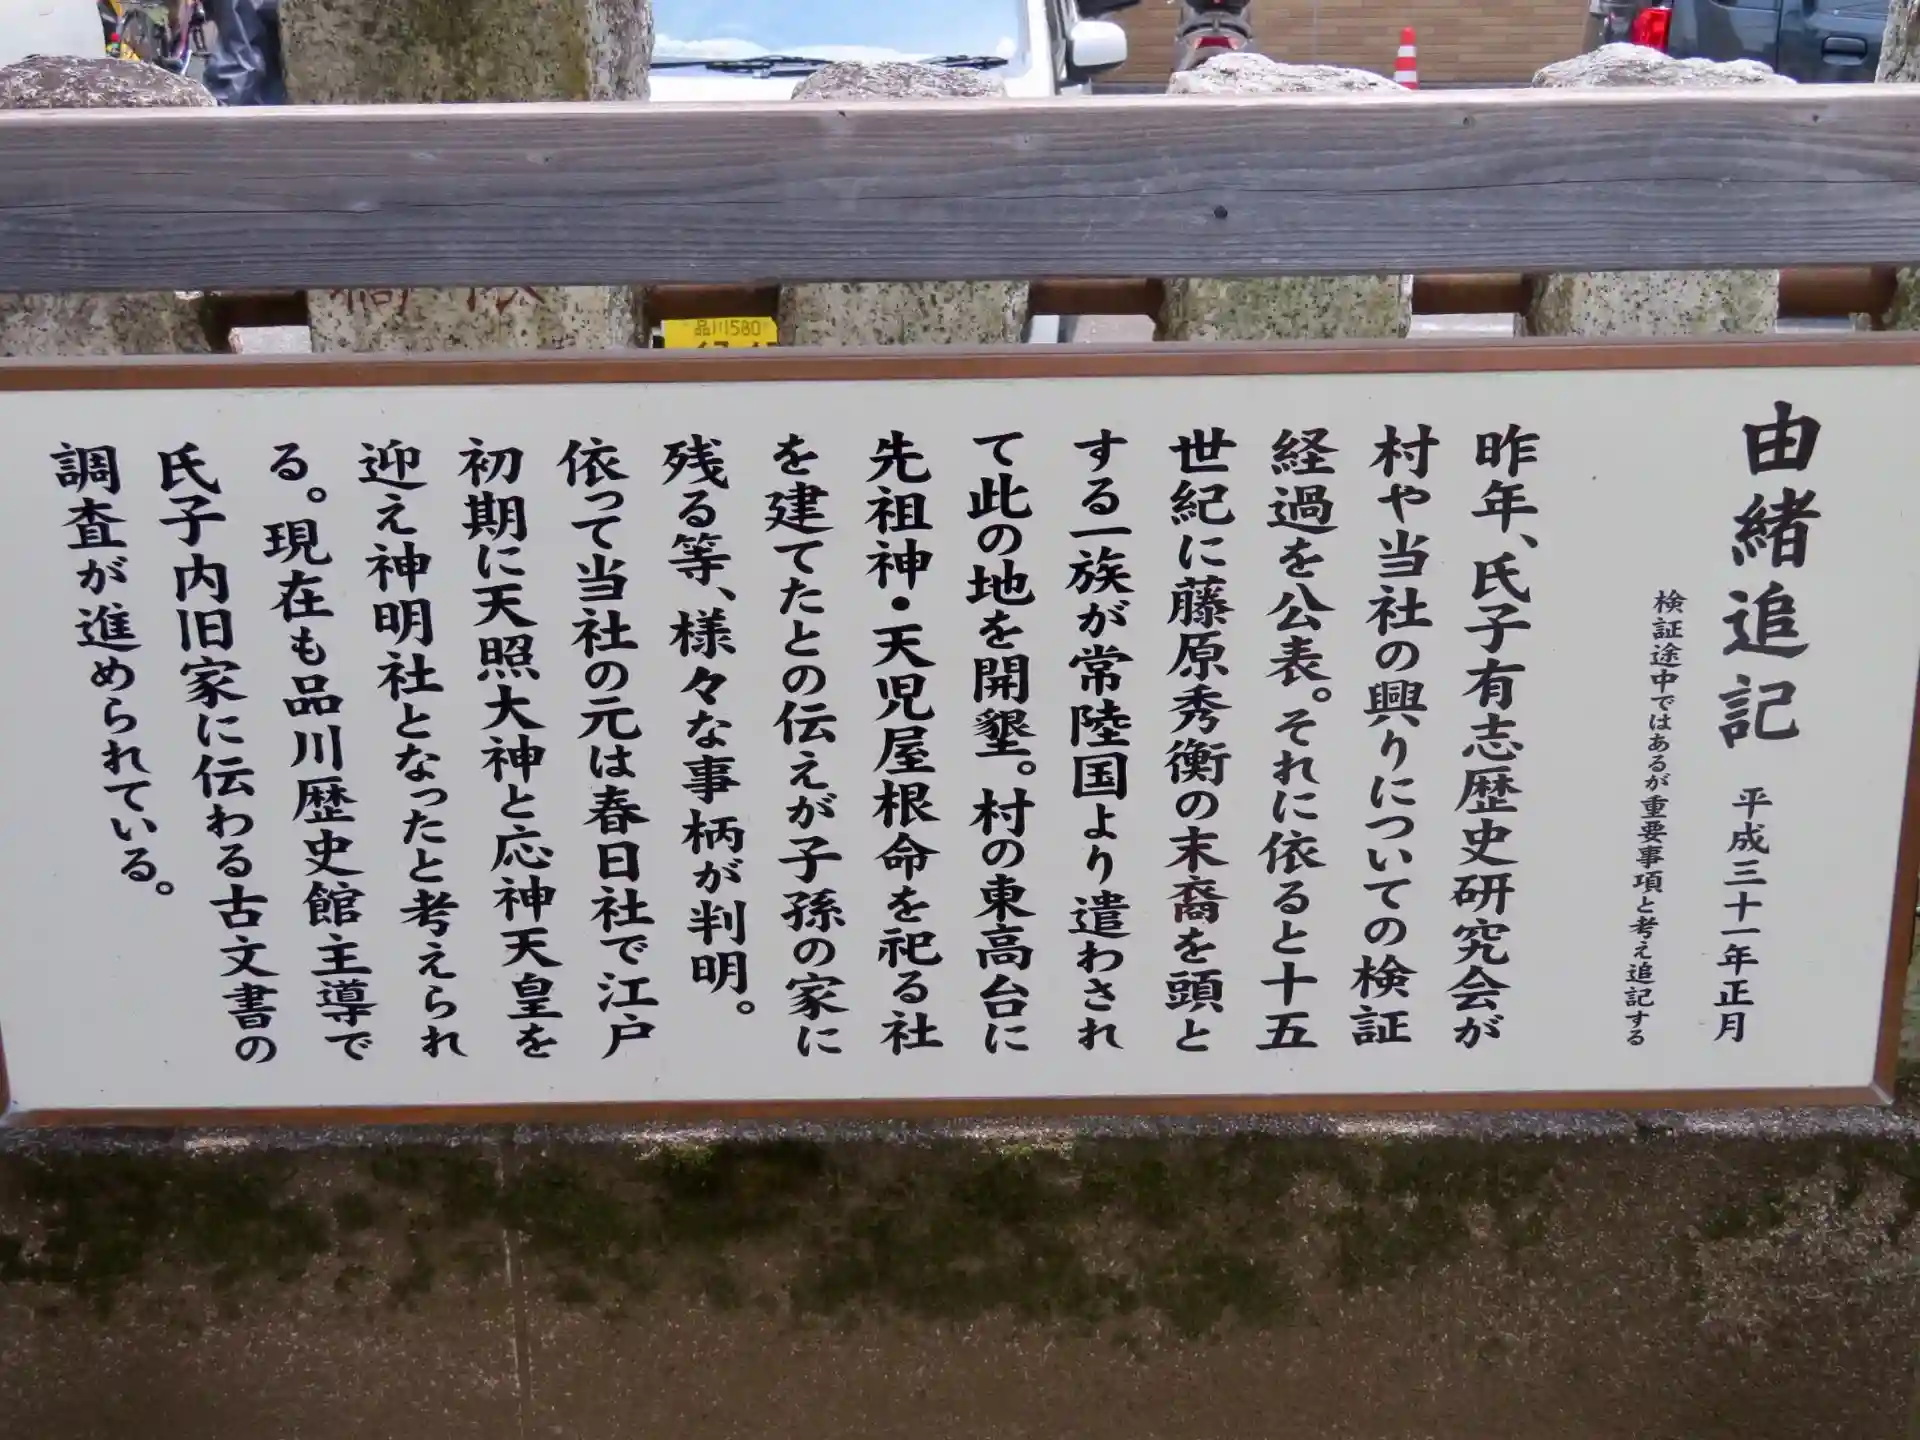 品川580
由緒追記 平成三十一年正月
検証途中ではあるが重要事項と考え追記する
昨年、氏子有志歴史研究会が
村や当社の興りについての検証
経過を公表。それに依ると十五
世紀に藤原秀衡の末裔を頭と
する一族が常陸国より遣わされ
て此の地を開墾。村の東高台に
先祖神・天児屋根命を祀る社
を建てたとの伝えが子孫の家に
残る等、様々な事柄が判明。
依って当社の元は春日社で江戸
初期に天照大神と応神天皇を
迎え神明社となったと考えられ
る。現在も品川歴史館主導で
氏子内旧家に伝わる古文書の
調査が進められている。